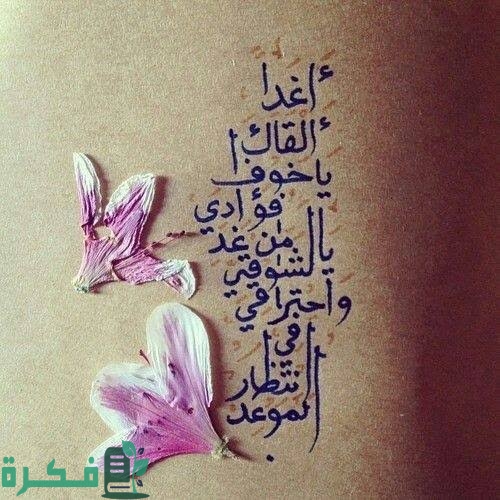 أغدًا
ألقاك
ياخوف
فؤادي
من غد
يالشوقي
واحتراقي
في
انتظار
الموعد
فكرة